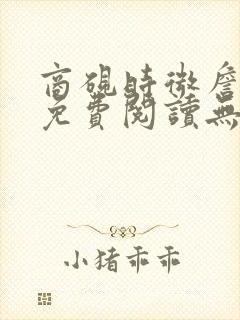 商硯時微詹
免費閱讀無
小猪乖乖